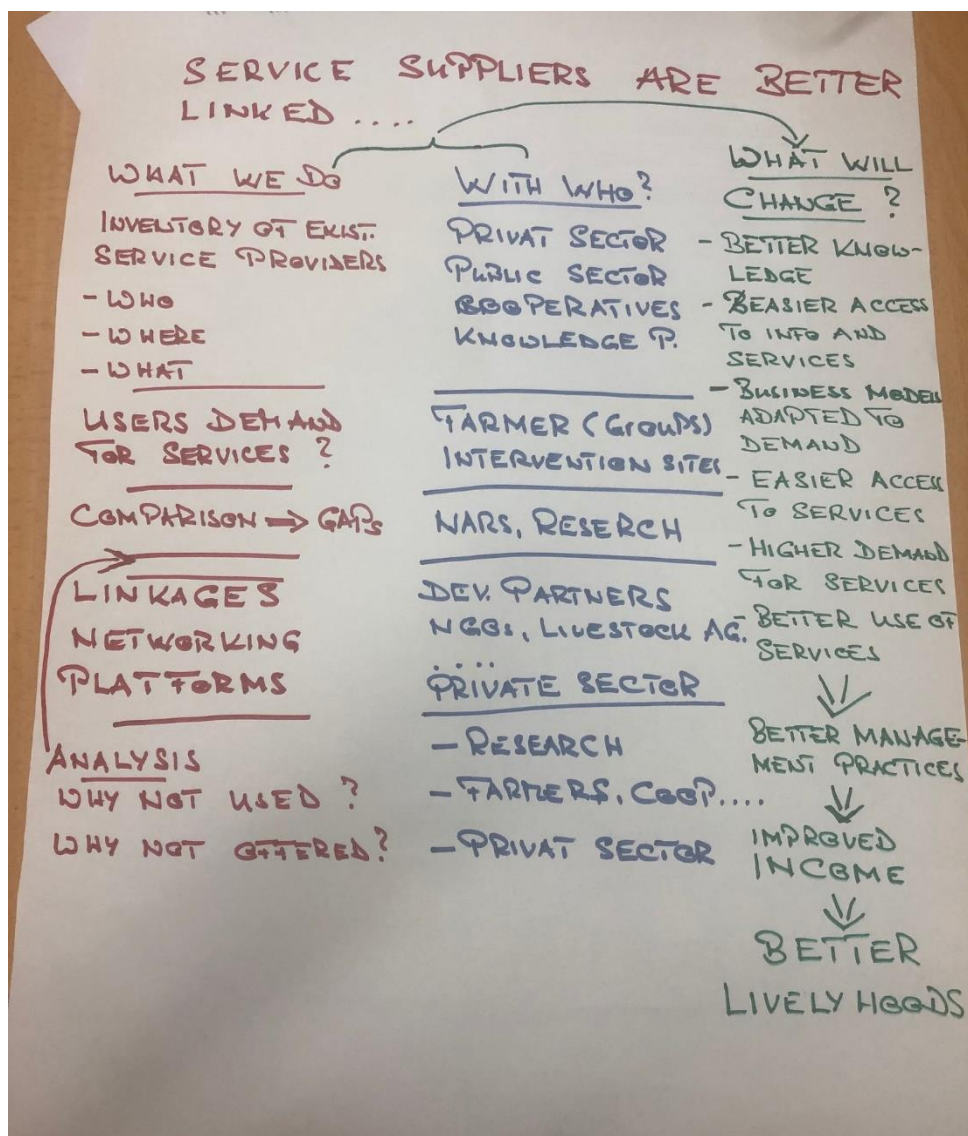 SERVICE SUPPLIERS ARE BETTER
LINKED ....
WHAT WE DO
INVENTORY OF EXIST.
SERVICE PROVIDERS
- WHO
- WHERE
- WHAT
USERS DEMAND
FOR SERVICES ?
COMPARISON ⇒ GAPS
LINKAGES
NETWORKING
PLATFORMS
ANALYSIS
WHY NOT USED ?
WHY NOT OFFERED?
WITH WHO?
PRIVAT SECTOR
PUBLIC SECTOR
COOPERATIVES
KNOWLEDGE P.
FARMER (GROUPS)
INTERVENTION SITES
NARS, RESERCH
DEV. PARTNERS
NGOs, LIVESTOCK AG.
....
PRIVATE SECTOR
- RESEARCH
- FARMERS, COOP....
- PRIVAT SECTOR
WHAT WILL
CHANGE ?
- BETTER KNOW-
LEDGE
- EASIER ACCESS
TO INFO AND
SERVICES
- BUSINESS MODELS
ADAPTED TO
DEMAND
- EASIER ACCESS
TO SERVICES
- HIGHER DEMAND
FOR SERVICES
- BETTER USE OF
SERVICES
BETTER MANAGE-
MENT PRACTICES
IMPROVED
INCOME
BETTER
LIVELYHOODS